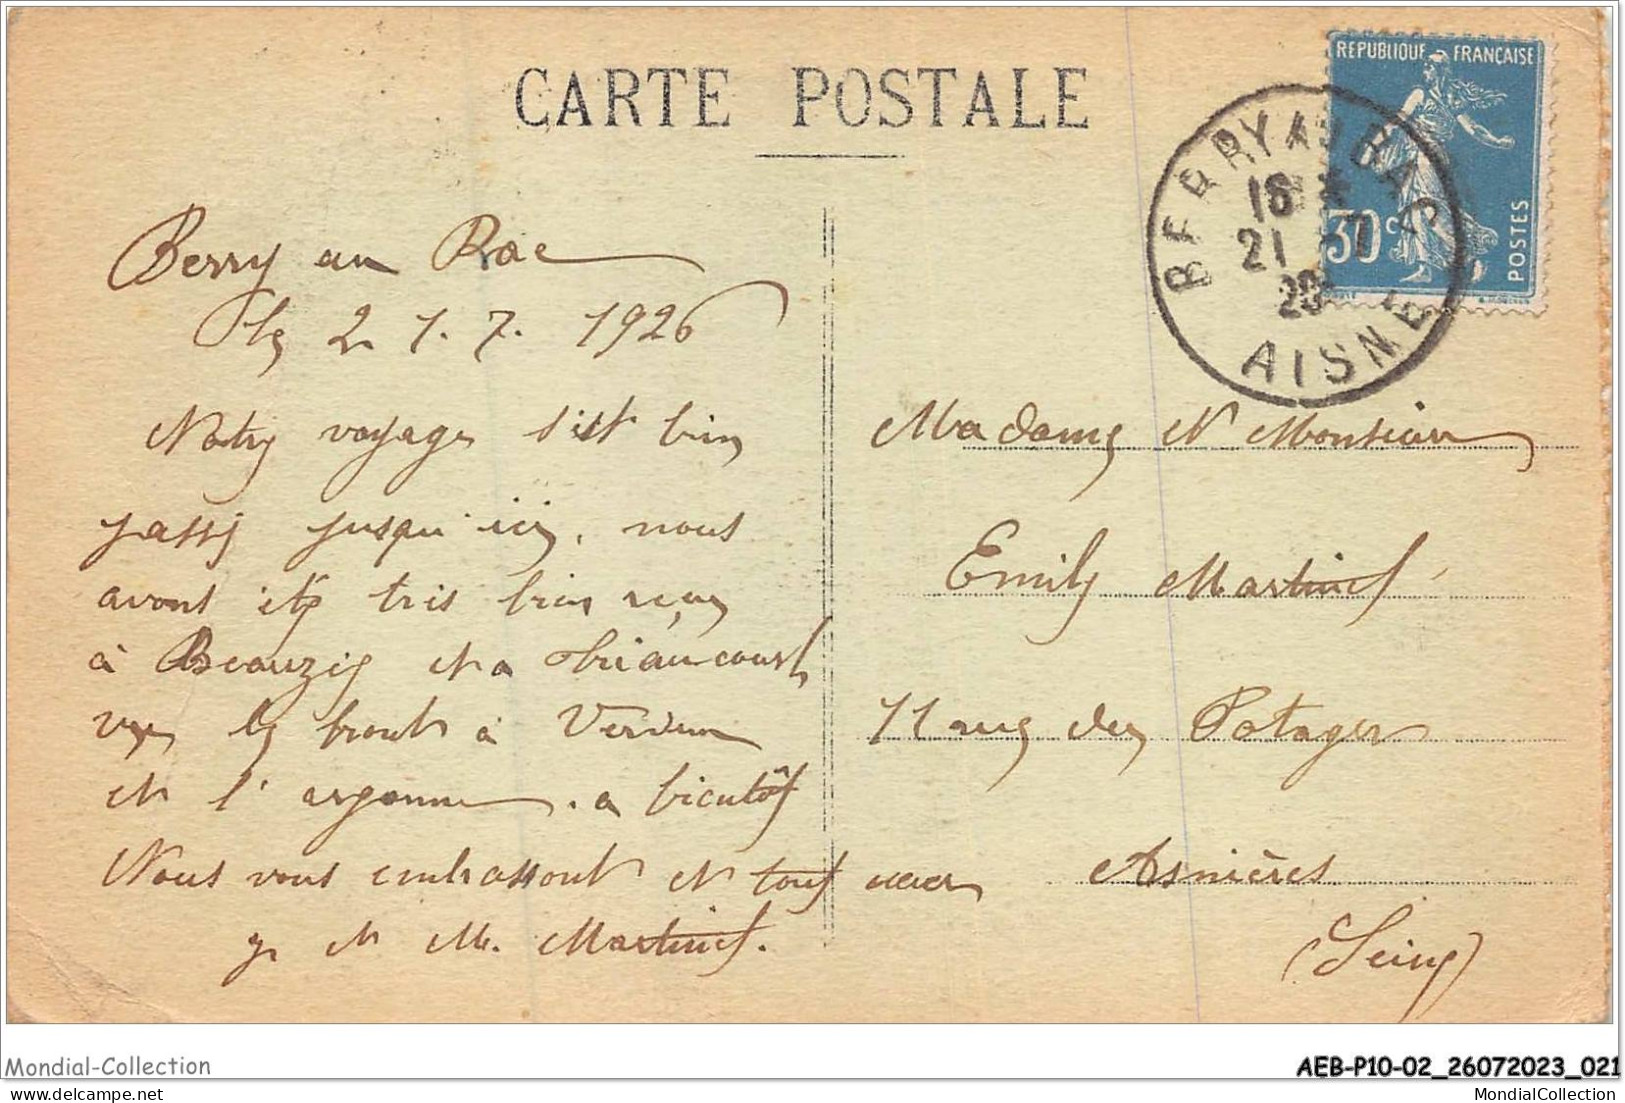 CARTE POSTALE
REPUBLIQUE FRANÇAISE
30c
POSTES
BERRY AU BAC
16
21 -7
26
AISNE
Berry au Bac
le 21.7.1926
Notre voyage s'est bien
passé jusqu'ici, nous
avons été très bien reçus
à Beauzée et a
les fronts à Verdun
et l'argonne. a bientôt
Nous vous embrassons et tous
et M. Martinet.
Madame et Monsieur
Emile Martinet
11 rue du Potager
Asnières
(Seine)
Mondial-Collection
AEB-P10-02_26072023_021
MondialCollection